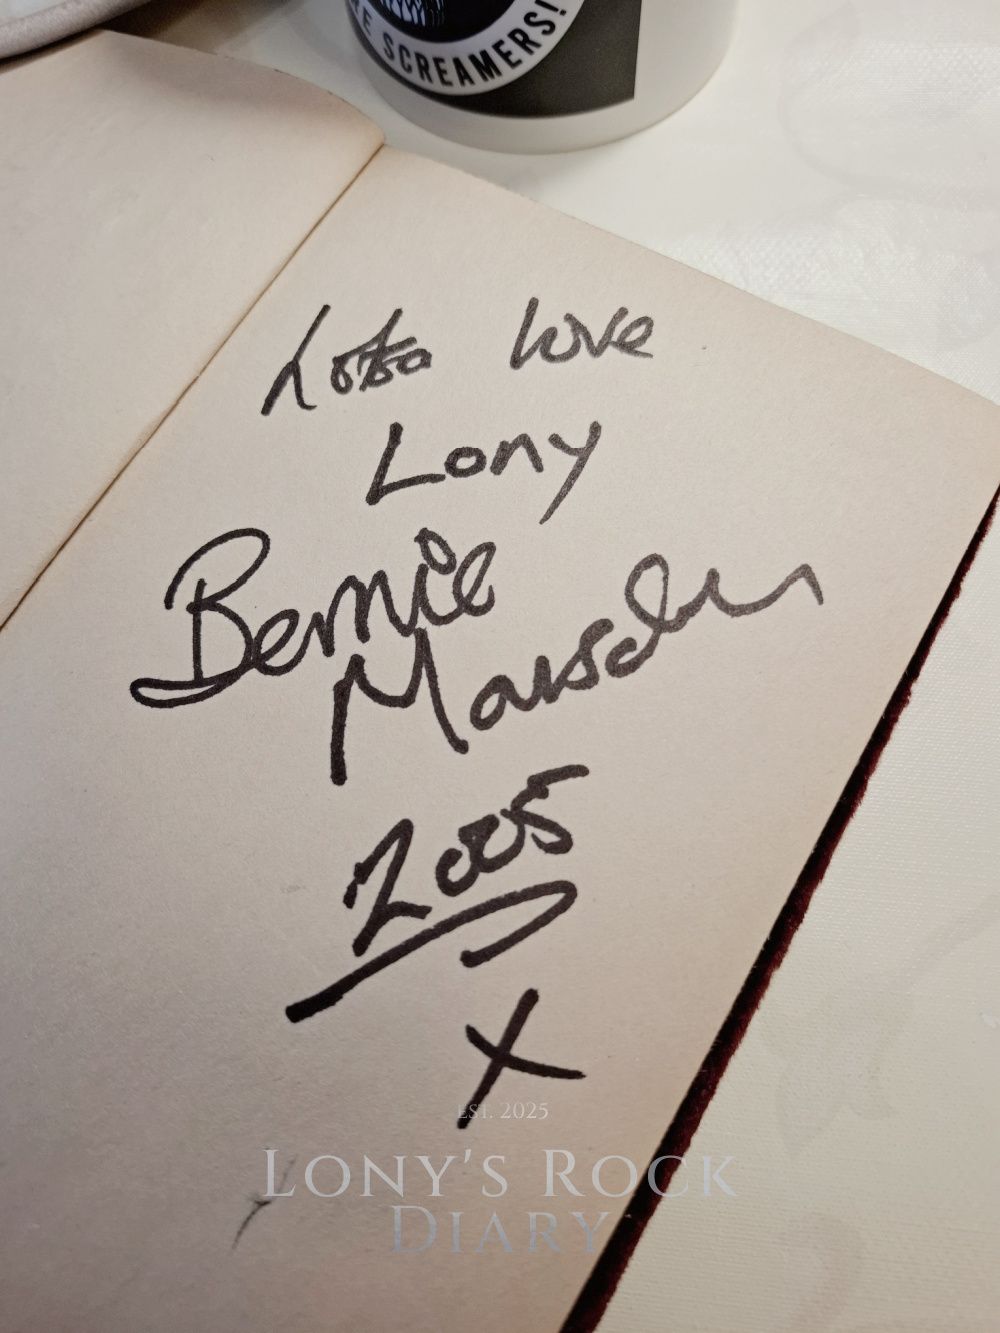 E SCREAMERS!
Lotsa love
Lony
Bernie
Marsden
2005
X
EST. 2025
LONY'S ROCK
DIARY